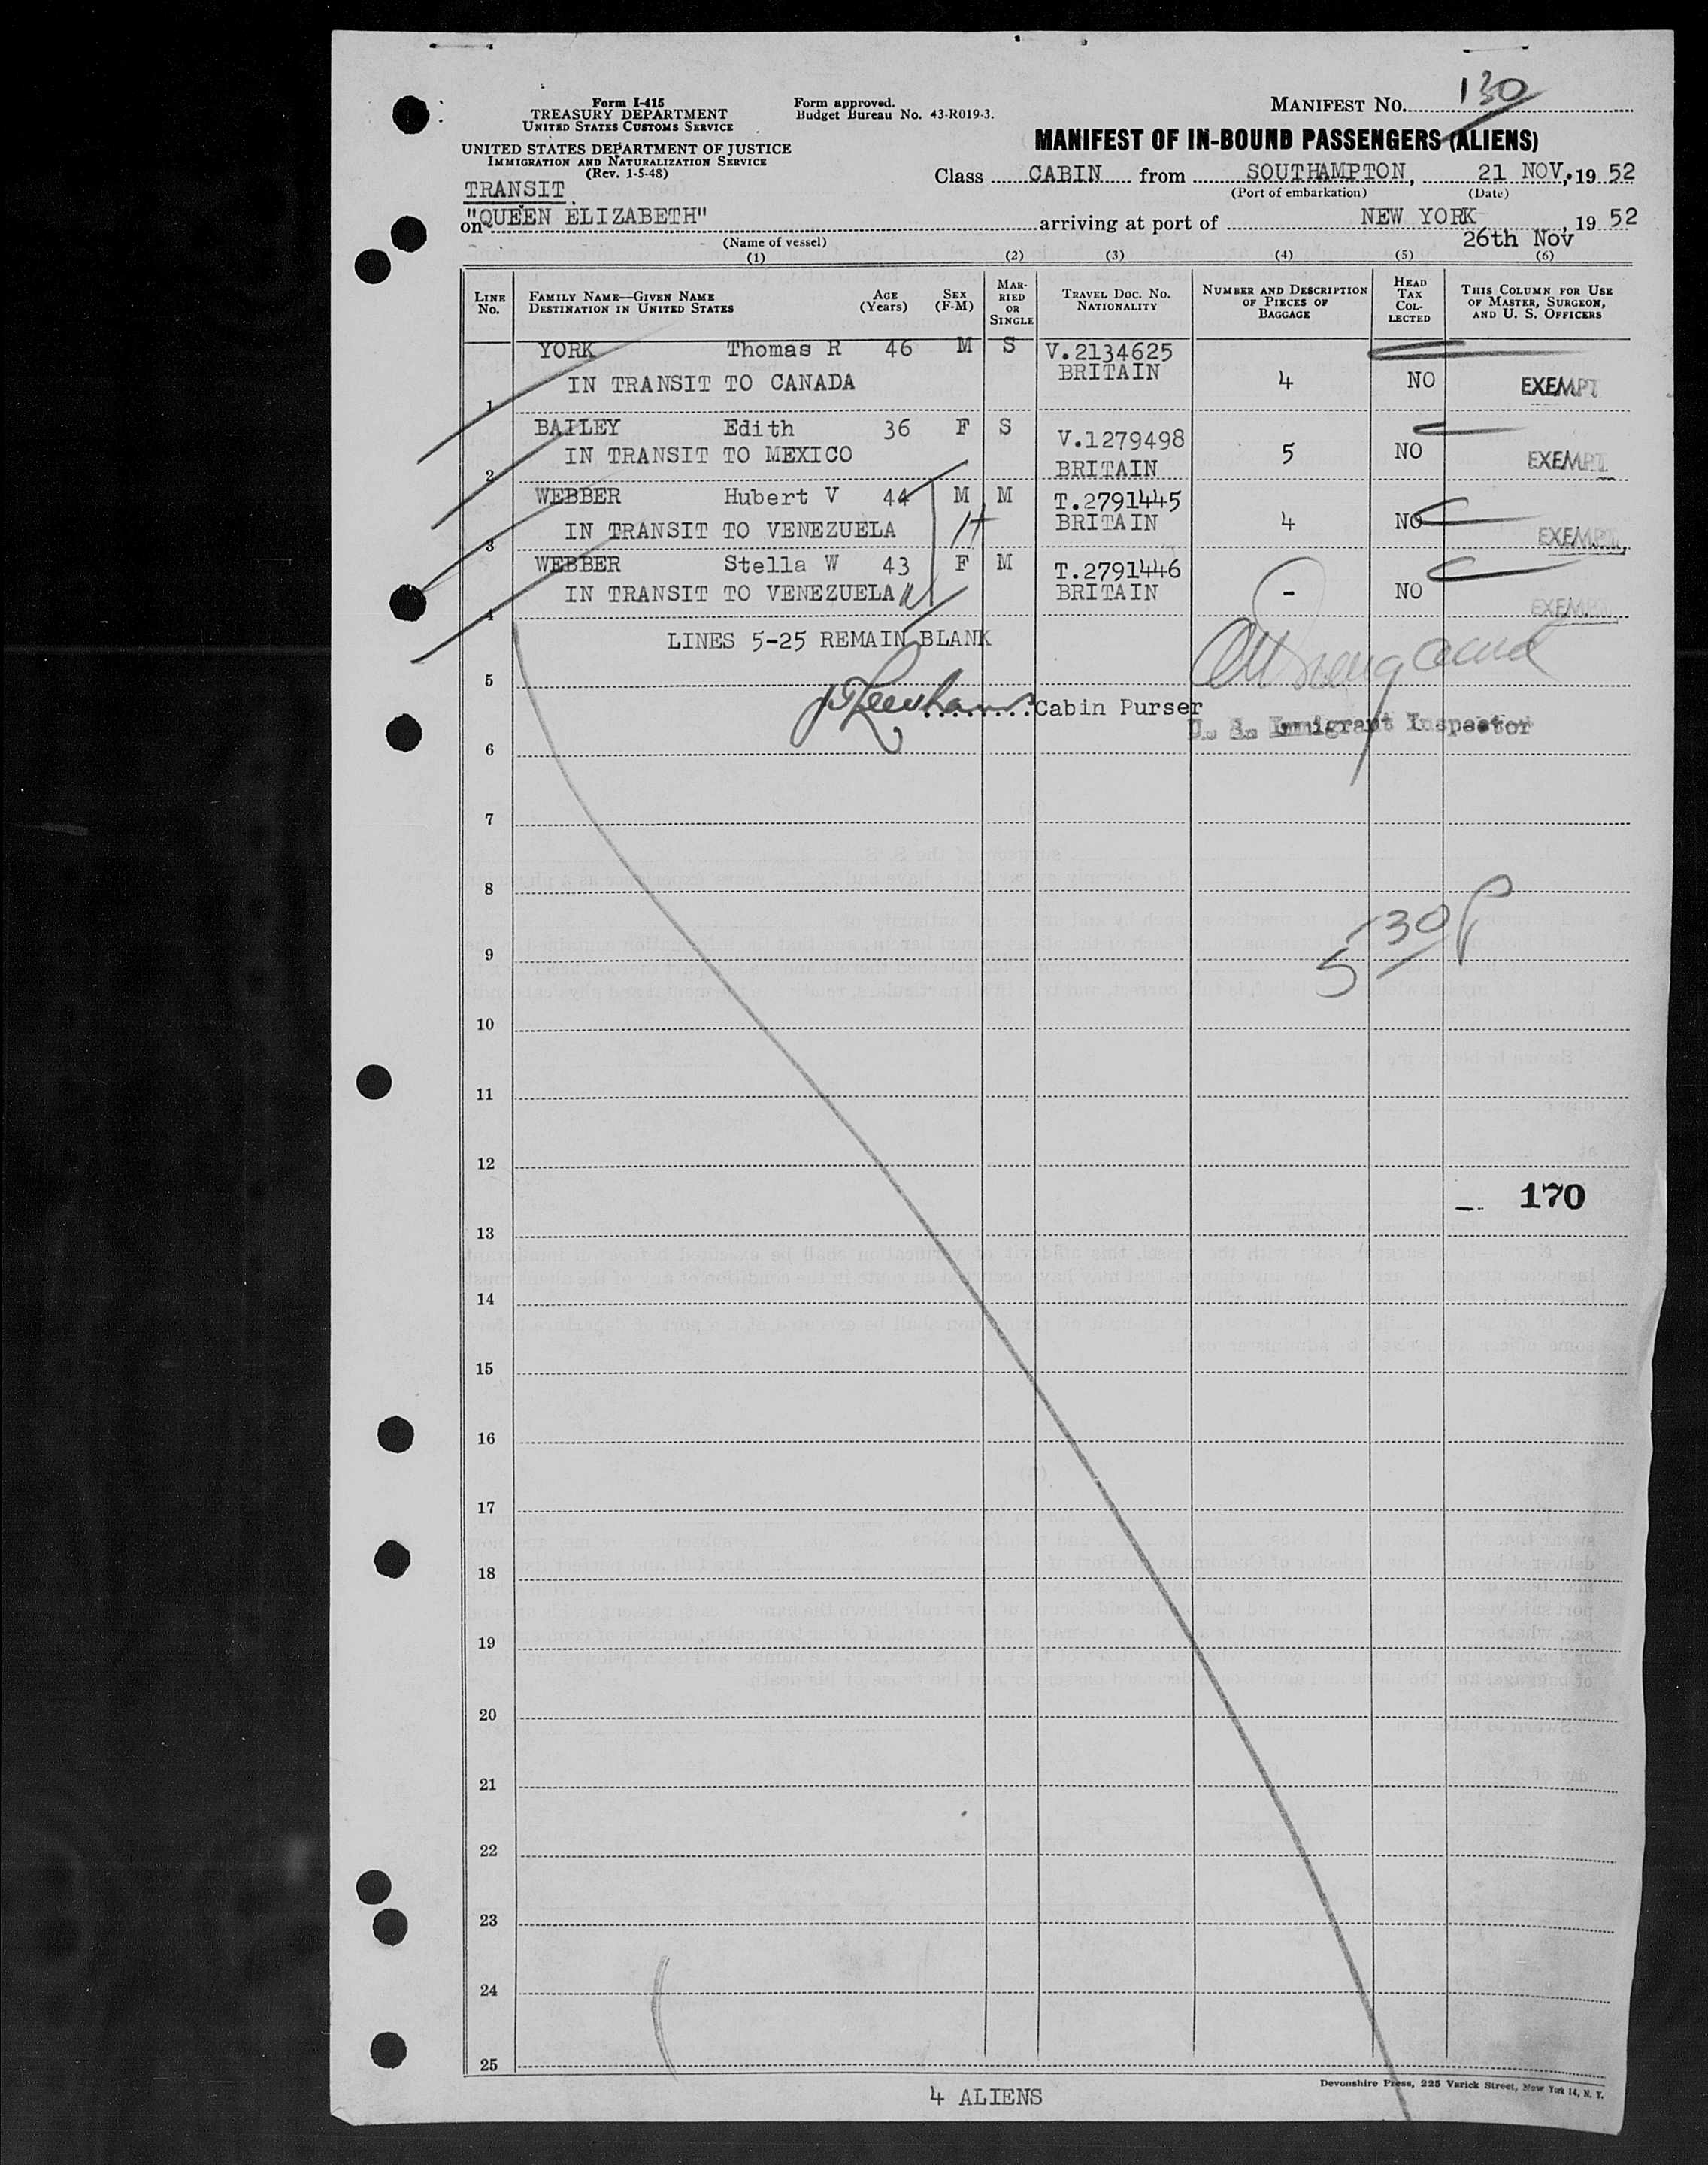 Form I-415
TREASURY DEPARTMENT
UNITED STATES CUSTOMS SERVICE
UNITED STATES DEPARTMENT OF JUSTICE
IMMIGRATION AND NATURALIZATION SERVICE
(Rev. 1-5-48)
Form approved.
Budget Bureau No. 43-R019-3.
MANIFEST No. 130
MANIFEST OF IN-BOUND PASSENGERS (ALIENS)
Class CABIN from SOUTHAMPTON, 21 NOV, 19 52
(Port of embarkation) (Date)
TRANSIT
on "QUEEN ELIZABETH" arriving at port of NEW YORK, 19 52
(Name of vessel) 26th Nov
(1) (2) (3) (4) (5) (6)
LINE No. FAMILY NAME—GIVEN NAME DESTINATION IN UNITED STATES AGE (Years) SEX (F-M) MARRIED OR SINGLE TRAVEL DOC. NO. NATIONALITY NUMBER AND DESCRIPTION OF PIECES OF BAGGAGE HEAD TAX COLLECTED THIS COLUMN FOR USE OF MASTER, SURGEON, AND U. S. OFFICERS
YORK Thomas R 46 M S V.2134625
1 IN TRANSIT TO CANADA BRITAIN 4 NO EXEMPT
BAILEY Edith 36 F S V.1279498
2 IN TRANSIT TO MEXICO BRITAIN 5 NO EXEMPT
WEBBER Hubert V 44 M M T.2791445
3 IN TRANSIT TO VENEZUELA BRITAIN 4 NO EXEMPT
WEBBER Stella W 43 F M T.2791446
4 IN TRANSIT TO VENEZUELA BRITAIN - NO EXEMPT
LINES 5-25 REMAIN BLANK
5
........Cabin Purser
U. S. Immigrant Inspector
6
7
8
5 30 P
9
10
11
12
170
13
14
15
16
17
18
19
20
21
22
23
24
25
4 ALIENS
Devonshire Press, 225 Varick Street, New York 14, N. Y.